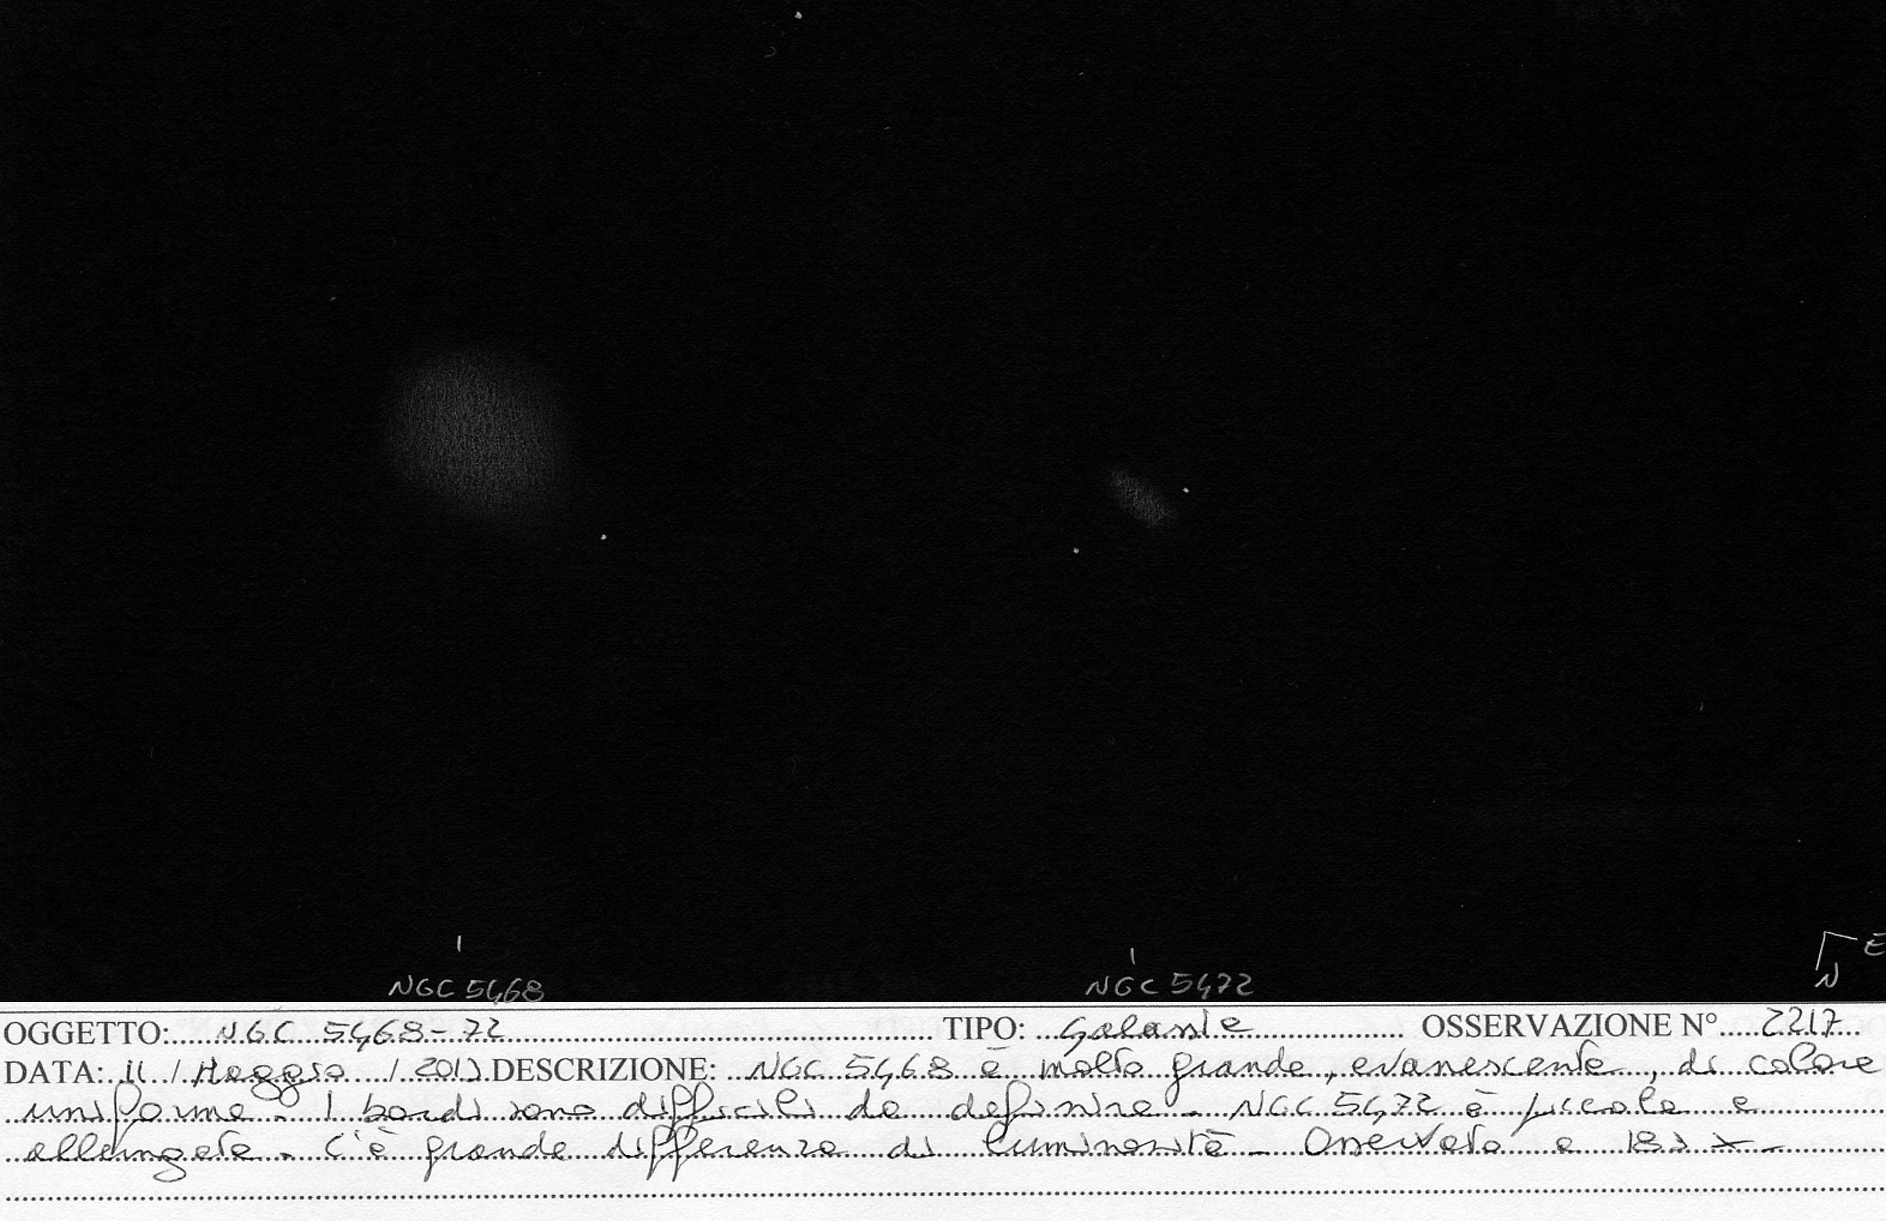 NGC 5468
NGC 5472
E
N
OGGETTO: NGC 5468-72 TIPO: Galassie OSSERVAZIONE N° 2217
DATA: 11 / Maggio / DESCRIZIONE: NGC 5468 è molto grande, evanescente, di colore
uniforme. I bordi sono difficili da definire. NGC 5472 è piccola e
allungata. C'è grande differenza di luminosità. Osservato a x.